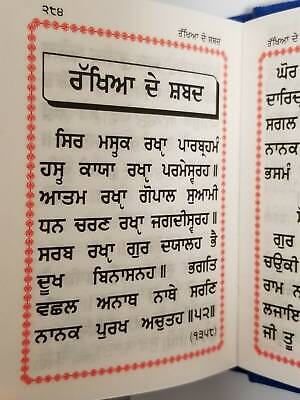 ੨੮੪
ਰੱਖਿਆ ਦੇ ਸ਼ਬਦ
ਰੱਖਿਆ ਦੇ ਸ਼ਬਦ
ਸਿਰ ਮਸ੍ਤਕ ਰਖ੍ਯਾ ਪਾਰਬ੍ਰਹਮੰ
ਹਸ੍ਤ ਕਾਯਾ ਰਖ੍ਯਾ ਪਰਮੇਸ੍ਵਰਹ॥
ਆਤਮ ਰਖ੍ਯਾ ਗੋਪਾਲ ਸੁਆਮੀ
ਧਨ ਚਰਣ ਰਖ੍ਯਾ ਜਗਦੀਸ੍ਵਰਹ॥
ਸਰਬ ਰਖ੍ਯਾ ਗੁਰ ਦਯਾਲਹ ਭੈ
ਦੂਖ ਬਿਨਾਸਨਹ॥ ਭਗਤਿ
ਵਛਲ ਅਨਾਥ ਨਾਥੇ ਸਰਣਿ
ਨਾਨਕ ਪੁਰਖ ਅਚੁਤਹ॥੫੨॥
(੧੩੫੮)
ਰੱਖਿਆ ਦੇ ਸ਼ਬਦ
ਘੋਰ
ਦਾਰਿਦ
ਸਗਲ
ਨਾਨਕ
ਭਸਮੰ
ਗੁਰ
ਚਉਕੀ
ਰਾਮ
ਲਜਾਇ
ਜੀ ਤੂ